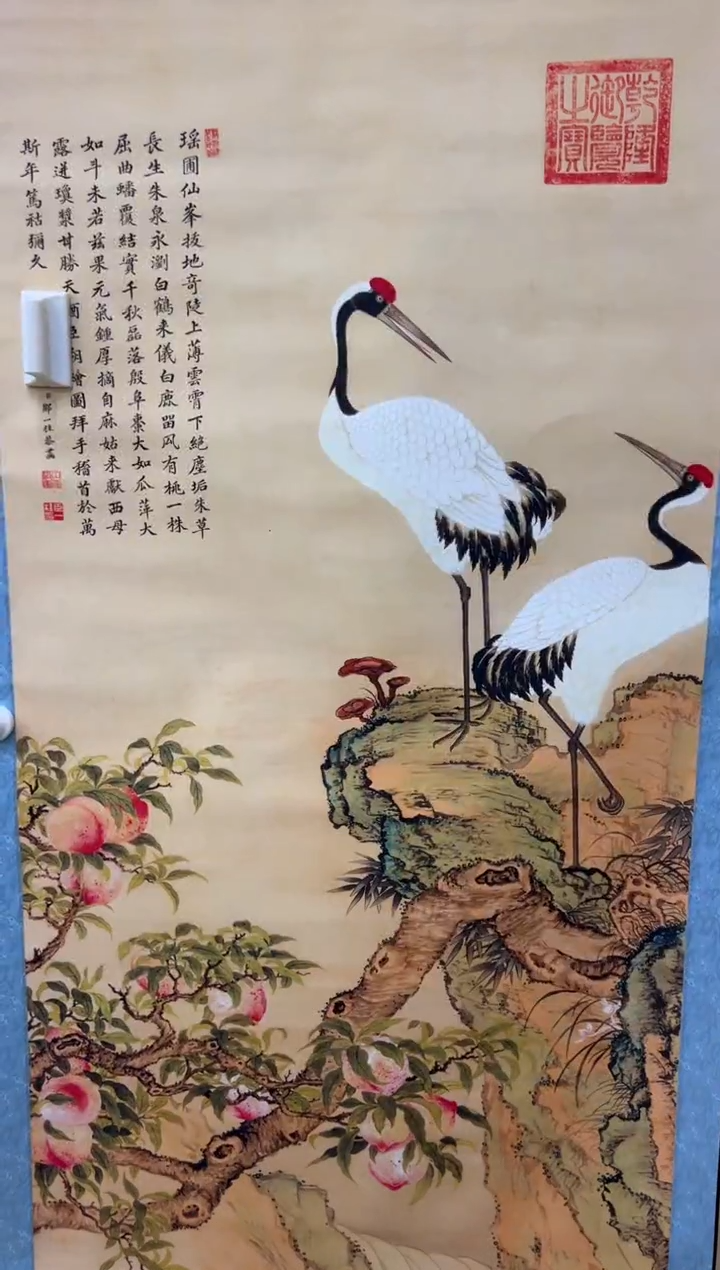 乾隆
御覽
之寶
瑶圃仙峯拔地竒陡上薄雲霄下絶塵垢朱草
長生朱泉永瀏白鶴来儀白鹿畱风有桃一株
屈曲蟠覆結實千秋磊落殷阜棗大如瓜萍大
如斗未若兹果元氣鍾厚摘自麻姑来獻西母
露迸瓊漿甘勝天繪圖拜手稽首於萬
斯年篤祜彌久
鄒一桂恭畫